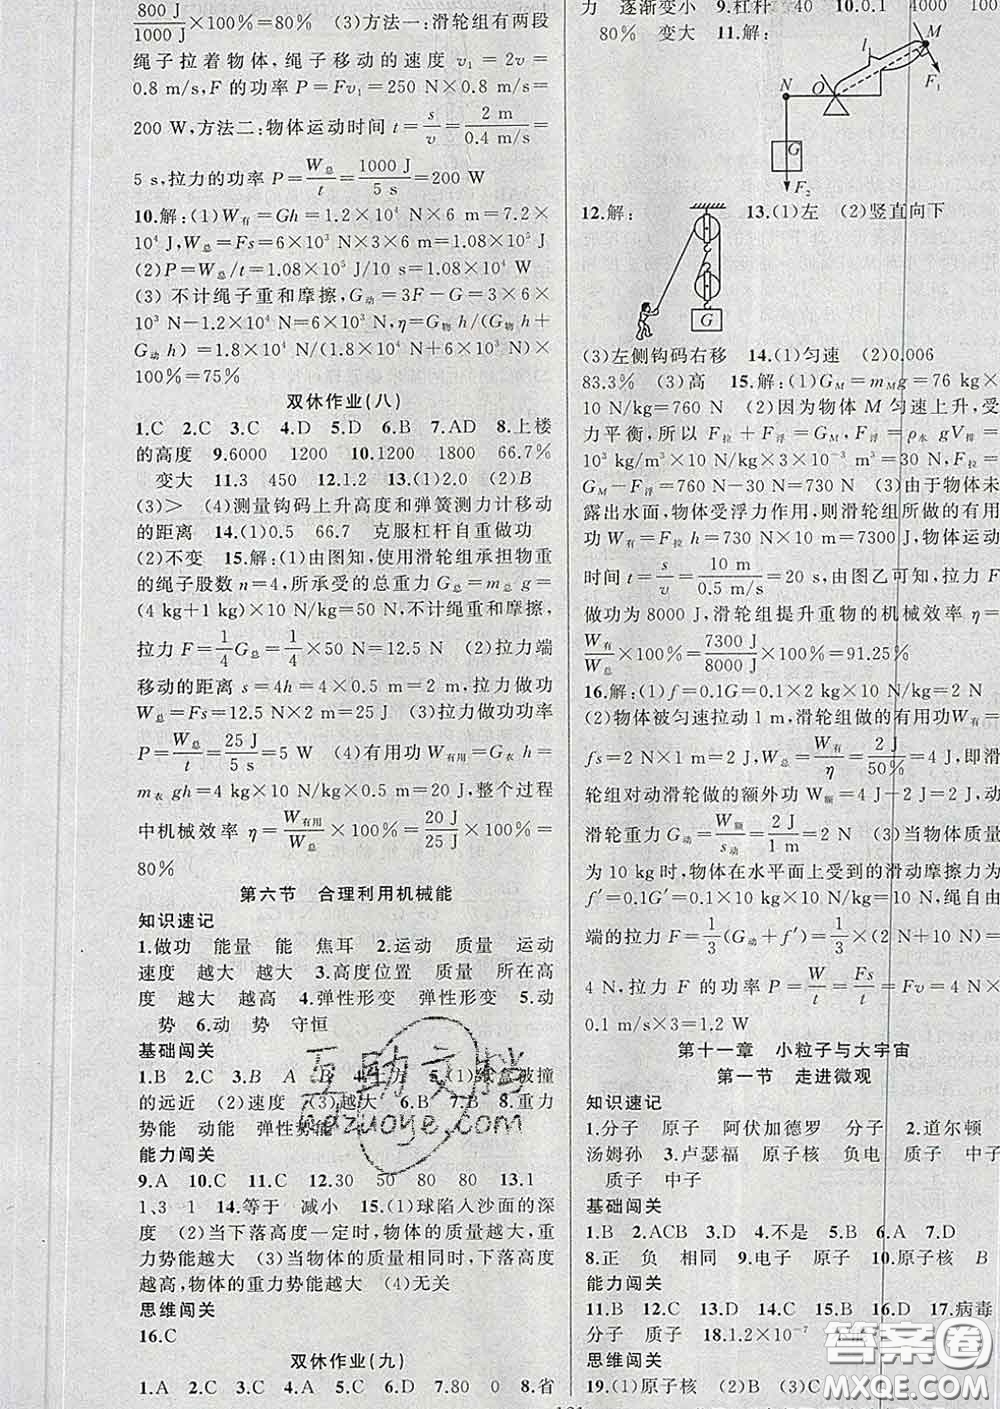 800 J/1000 J×100%=80%　(3)方法一:滑轮组有两段
绳子拉着物体,绳子移动的速度 v₁=2v=
0.8 m/s,F 的功率 P=Fv₁=250 N×0.8 m/s=
200 W,方法二:物体运动时间 t=s/v=2 m/0.4 m/s=
5 s,拉力的功率 P=W总/t=1000 J/5 s=200 W
10.解:(1)W有=Gh=1.2×10⁴ N×6 m=7.2×
10⁴ J,W总=Fs=6×10³ N×3×6 m=1.08×10⁵ J
(2)P=W总/t=1.08×10⁵ J/10 s=1.08×10⁴ W
(3) 不计绳子重和摩擦,G动=3F-G=3×6×
10³ N-1.2×10⁴ N=6×10³ N,η=G物 h/(G物 h+
G动 h)=1.8×10⁴ N/(1.8×10⁴ N+6×10³ N)×
100%=75%
双休作业(八)
1.C　2.C　3.C　4.D　5.D　6.B　7.AD　8.上楼
的高度　9.6000　1200　10.1200　1800　66.7%
变大　11.3　450　12.1.2　13.(1)2.0　(2)B
(3)>　(4)测量钩码上升高度和弹簧测力计移动
的距离　14.(1)0.5　66.7　克服杠杆自重做功
(2)不变　15.解:(1)由图知,使用滑轮组承担物重
的绳子股数 n=4,所承受的总重力 G总=m总 g=
(4 kg+1 kg)×10 N/kg=50 N,不计绳重和摩擦,
拉力 F=1/4G总=1/4×50 N=12.5 N　(2)拉力端
移动的距离 s=4h=4×0.5 m=2 m,拉力做功
W总=Fs=12.5 N×2 m=25 J　(3)拉力做功功率
P=W总/t=25 J/5 s=5 W　(4)有用功 W有用=G衣 h=
m衣 gh=4 kg×10 N/kg×0.5 m=20 J,整个过程
中机械效率 η=W有用/W总×100%=20 J/25 J×100%=
80%
第六节　合理利用机械能
知识速记
1.做功　能量　能　焦耳　2.运动　质量　运动
速度　越大　越大　3.高度位置　质量　所在高
度　越大　越高　4.弹性形变　弹性形变　5.动
势　6.动　势　守恒
基础闯关
1.B　2.C　3.B　A　4.　5.(1)盒被撞
的远近　(2)速度　(3)越大　6.B　7.B　8.重力
势能　动能　弹性势能
能力闯关
9.A　10.C　11.C　12.30　50　80　80　13.1
1、3　1　14.等于　减小　15.(1)球陷入沙面的深
度　(2)当下落高度一定时,物体的质量越大,重
力势能越大　(3)当物体的质量相同时,下落高度
越高,物体的重力势能越大　(4)无关
思维闯关
16.C
双休作业(九)
1.A　2.C　3.C　4.B　5.C　6.D　7.80　0　8.省
力　逐渐变小　9.杠杆　40　10.0.1　4000　100
80%　变大　11.解:
M
l
F₁
N
O
G
F₂
12.解:　13.(1)左　(2)竖直向下
G
(3)左侧钩码右移　14.(1)匀速　(2)0.006
83.3%　(3)高　15.解:(1)G_M=m_M g=76 kg×
10 N/kg=760 N　(2)因为物体 M 匀速上升,受
力平衡,所以 F拉+F浮=G_M,F浮=ρ水 gV排=
10³ kg/m³×10 N/kg×3×10⁻³ m³=30 N,F拉=
G_M-F浮=760 N-30 N=730 N　(3)由于物体未
露出水面,物体受浮力作用,则滑轮组所做的有用
功 W有=F拉 h=730 N×10 m=7300 J,物体运动
时间 t=s/v=10 m/0.5 m/s=20 s,由图乙可知,拉力 F
做功为 8000 J,滑轮组提升重物的机械效率 η=
W有/W总×100%=7300 J/8000 J×100%=91.25%
16.解:(1)f=0.1G=0.1×2 kg×10 N/kg=2 N
(2)物体被匀速拉动 1 m,滑轮组做的有用功W有=
fs=2 N×1 m=2 J,W总=W有/η=2 J/50%=4 J,即滑
轮组对动滑轮做的额外功 W额=4 J-2 J=2 J,动
滑轮重力 G动=W额/s动=2 J/1 m=2 N　(3)当物体质量
为 10 kg 时,物体在水平面上受到的滑动摩擦力为
f′=0.1G=0.1×10 kg×10 N/kg=10 N,绳自由
端的拉力 F=1/3(G动+f′)=1/3×(2 N+10 N)=
4 N,拉力 F 的功率 P=W/t=Fs/t=Fv=4 N×
0.1 m/s×3=1.2 W
第十一章　小粒子与大宇宙
第一节　走进微观
知识速记
1.分子　原子　阿伏加德罗　分子　2.道尔顿
汤姆孙　3.卢瑟福　原子核　负电　质子　中子
质子　中子
基础闯关
1.B　2.ACB　3.D　4.不是　5.B　6.A　7.D
8.正　负　相同　9.电子　原子　10.原子核　B
能力闯关
11.B　12.C　13.D　14.C　15.B　16.D　17.病毒
分子　质子　18.1.2×10⁻⁷
思维闯关
19.(1)原子核　(2)B　(3)C
互助文档
hdzuoye.com
答案圈
MXQE.COM